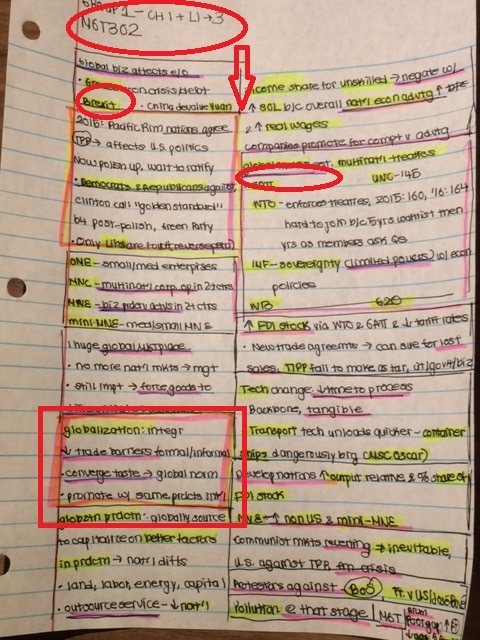 GROUP 1 - CH 1 + LI → 3
MGT302
Global biz affects e/o
crisis/debt
Brexit · China devalue Yuan
2015: Pacific Rim nations agree
TPP → affects U.S. politics
Now polish up, wait to ratify
· Democrats & Republicans against,
Clinton call "golden standard"
b4 post-polish, Green Party
· Only Libs are for it
ONE - small/med enterprises
MNC - multinat'l corp. op in 2+ ctrs
MNE - biz
mini-MNE - med/small MNE
1 huge global mktplace
· no more nat'l mkts → mgt
· still impt → force goods to
globalization: integr
↓ trade barriers formal/informal
· converge taste → global norm
· promote w/ same prdcts int'l
globztn prdctn: globally source
to capitalize on better factors
in prdctn → nat'l diffs
· land, labor, energy, capital
· outsource service - ↓ nat'l
income share for unskilled → negate w/
↑ SOL b/c overall nat'l econ advtg
& ↑ real wages
companies promote for compt v advtg
multinat'l treaties
GATT UNC-145
WTO - enforces treaties, 2015:160, '16:164
hard to join b/c 5 yrs waitlist then
yrs as members ask Qs
IMF - sovereignty (limited powers) w/ econ
policies
WB G20
↑ FDI stock via WTO & GATT & ↓ tariff rates
· New trade agreemts → can sue for lost
sales, TIPP fail to make as far,
Tech change: ↓ time to process
Backbone, tangible
Transport tech unloads quicker - container
ships dangerously brg (MSC Oscar)
Develop nations ↑ output relative & % share of
FDI stock
MNE - ↑ non US & mini-MNE
Communist mkts reverting → inevitable,
U.S. against TPP, fin crisis
Protesters against
Pollution @ that stage MGT